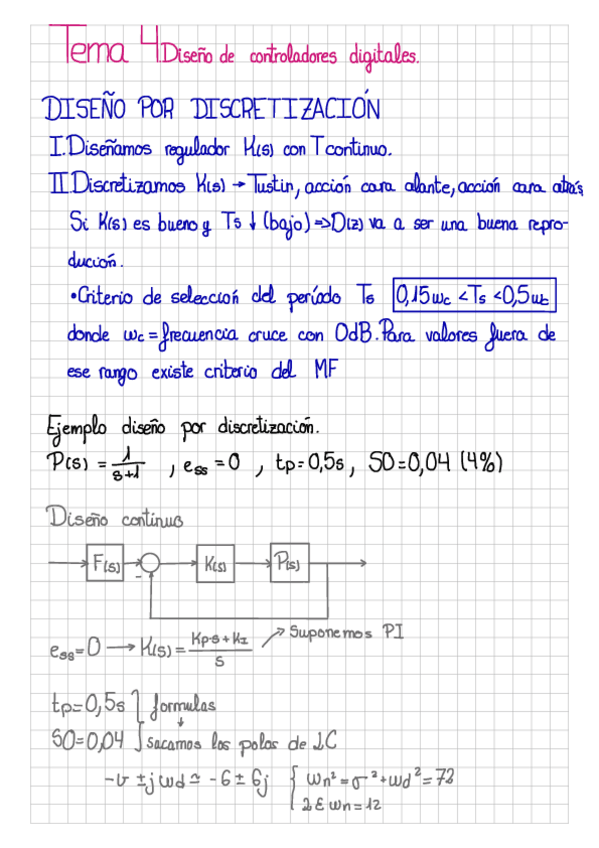 Tema 4. Diseño de controladores digitales.
DISEÑO POR DISCRETIZACIÓN
I. Diseñamos regulador K(s) con T continuo.
II. Discretizamos K(s) → Tustin, acción cara alante, acción cara atrás
Si K(s) es bueno y Ts ↓ (bajo) ⇒ D(z) va a ser una buena repro-
dución.
• Criterio de selección del período Ts 0,15wc < Ts < 0,5wc
donde wc = frecuencia cruce con 0dB. Para valores fuera de
ese rango existe criterio del MF
Ejemplo diseño por discretización.
P(s) = 1/(s+1) , ess = 0 , tp = 0,5s , SO = 0,04 (4%)
Diseño continuo
F(s) - K(s) P(s)
ess = 0 → K(s) = (Kp·s + KI)/s ↗ Suponemos PI
tp = 0,5s } formulas
↓
SO = 0,04 } sacamos los polos de LC
-σ ± jwd ≃ -6 ± 6j { wn² = σ² + wd² = 72
2 ξ wn = 12